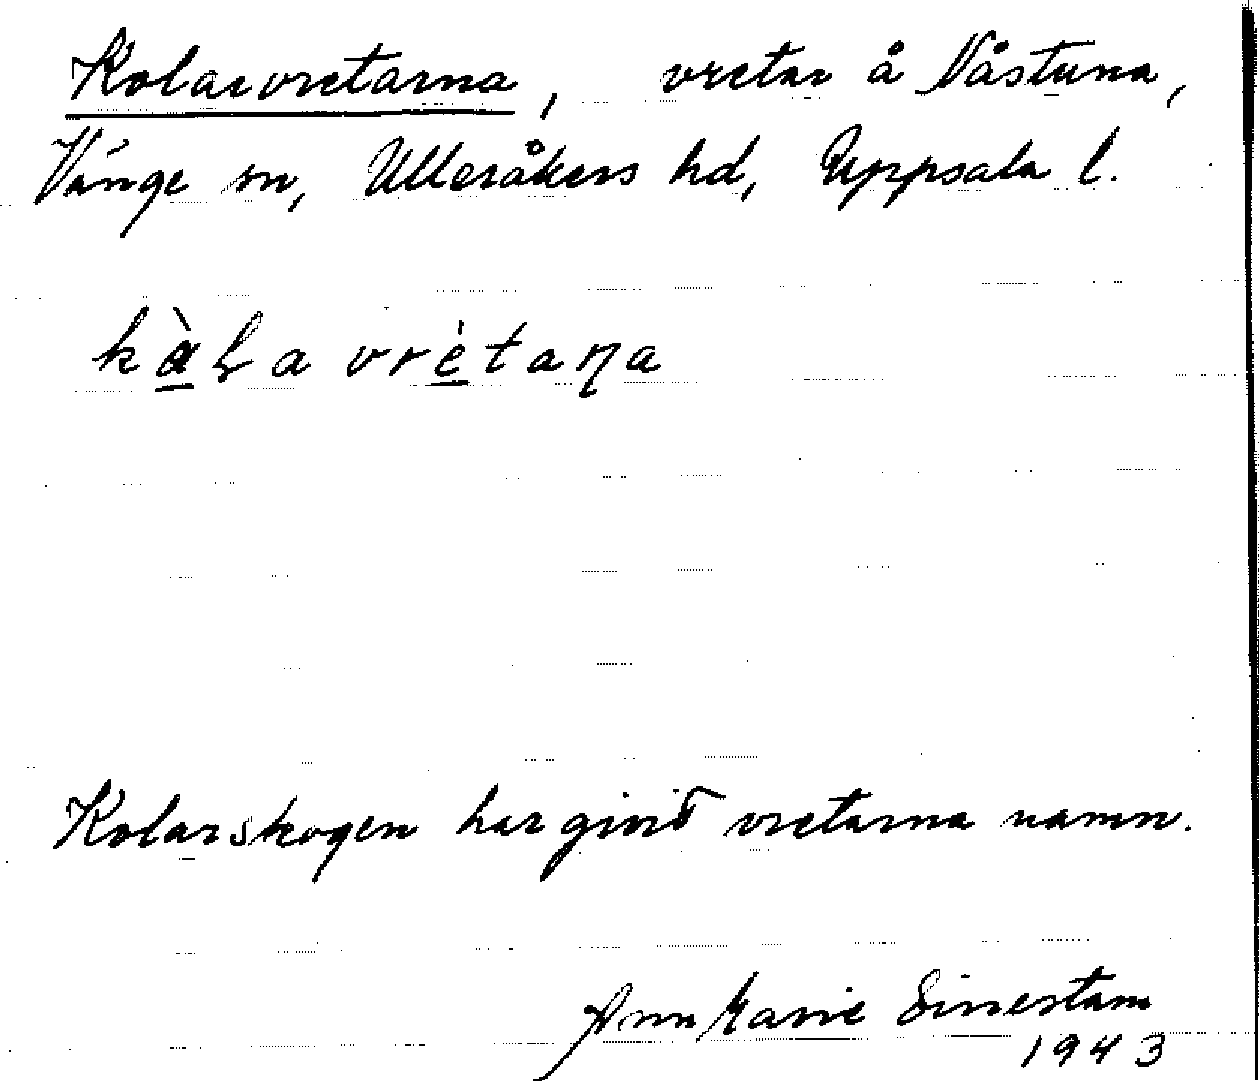 Kolarvretarna, vretar å Nåstuna,
Vänge sn, Ulleråkers hd, Uppsala l.
kàɽa vrètaɳa
Kolarskogen har givit vretarna namn.
Ann Marie Sinnestam
1943